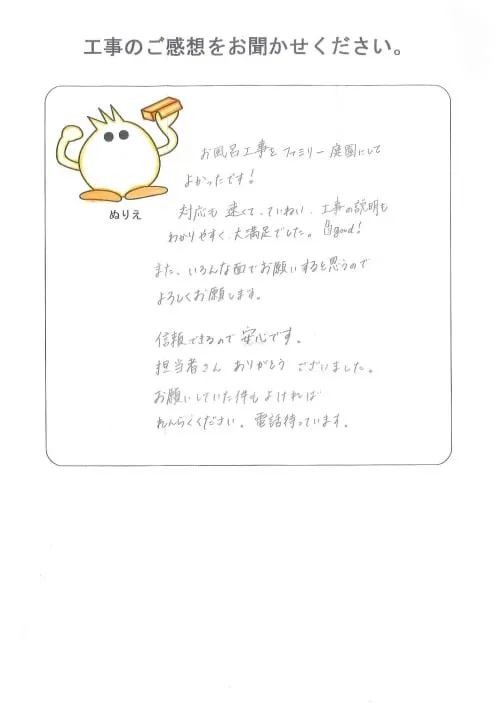 工事のご感想をお聞かせください。
ぬりえ
お風呂工事を ファミリー庭園にして
よかったです！
対応も 速くて、ていねい、工事の説明も
わかりやすく、大満足でした。good!
また、いろんな面でお願いすると思うので
よろしくお願します。
信頼できるので 安心です。
担当者さん ありがとう ございました。
お願いしていた件も よければ
れんらくください。電話待っています。